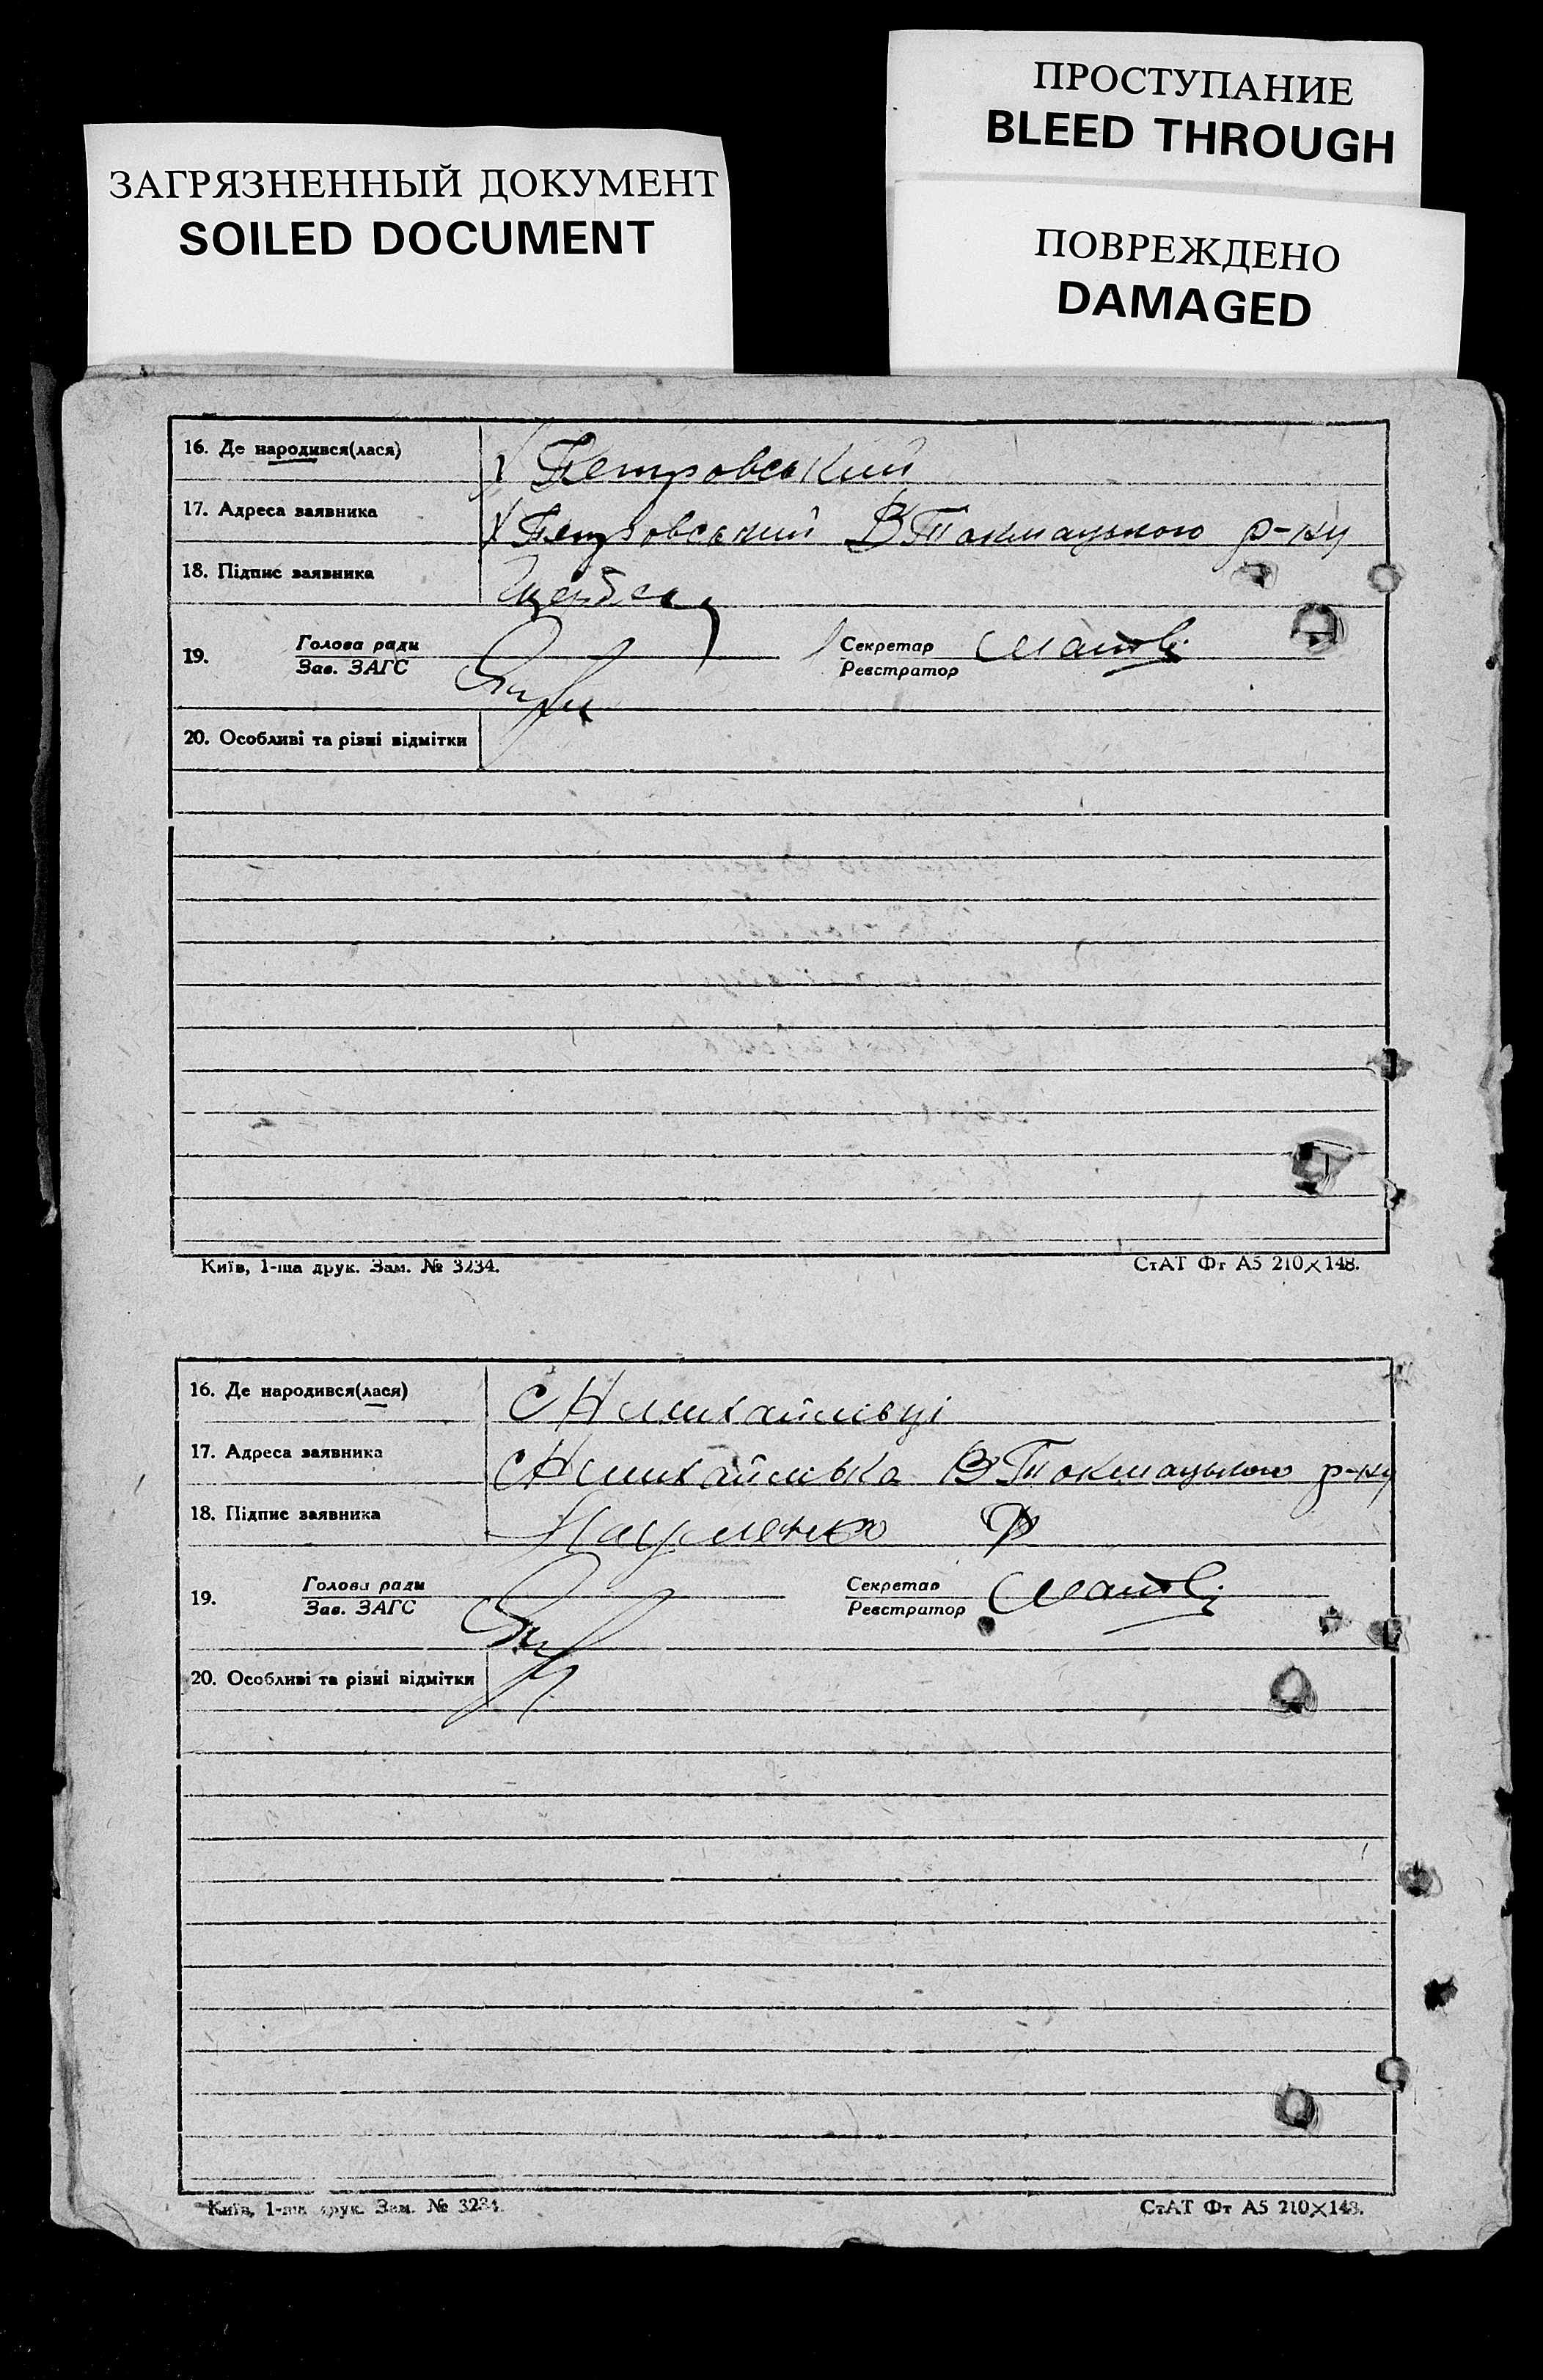 ПРОСТУПАНИЕ
BLEED THROUGH
ЗАГРЯЗНЕННЫЙ ДОКУМЕНТ
SOILED DOCUMENT
ПОВРЕЖДЕНО
DAMAGED
16. Де народився(лася) х Петровський
17. Адреса заявника х Петровський ВТокмацького р-ну
18. Підпис заявника
19. Голова ради Секретар
Зав. ЗАГС Реєстратор
20. Особливі та різні відмітки
Київ, 1-ша друк. Зам. № 3234. СтАТ Фт А5 210×148.
16. Де народився(лася) с Н михайлівці
17. Адреса заявника с Н михайлівка ВТокмацького р-ну
18. Підпис заявника Науменко Ф
19. Голова ради Секретар
Зав. ЗАГС Реєстратор
20. Особливі та різні відмітки
Київ, 1-ша друк. Зам. № 3234. СтАТ Фт А5 210×148.